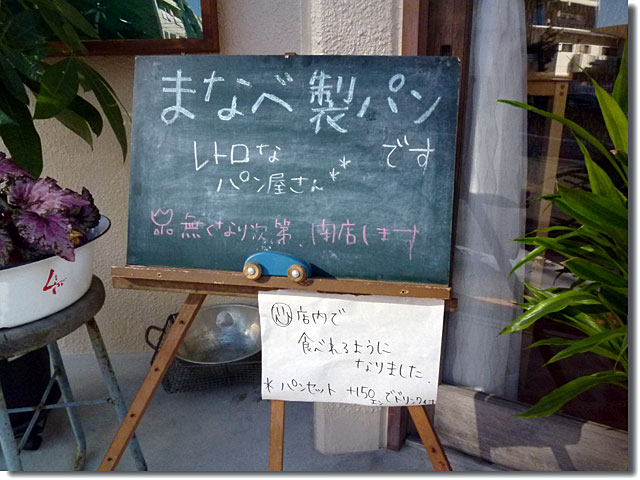 まなべ製パン
レトロな です
パン屋さん**
無くなり次第、閉店します
店内で
食べれるように
なりました。
* パンセット +150エンでドリンク付